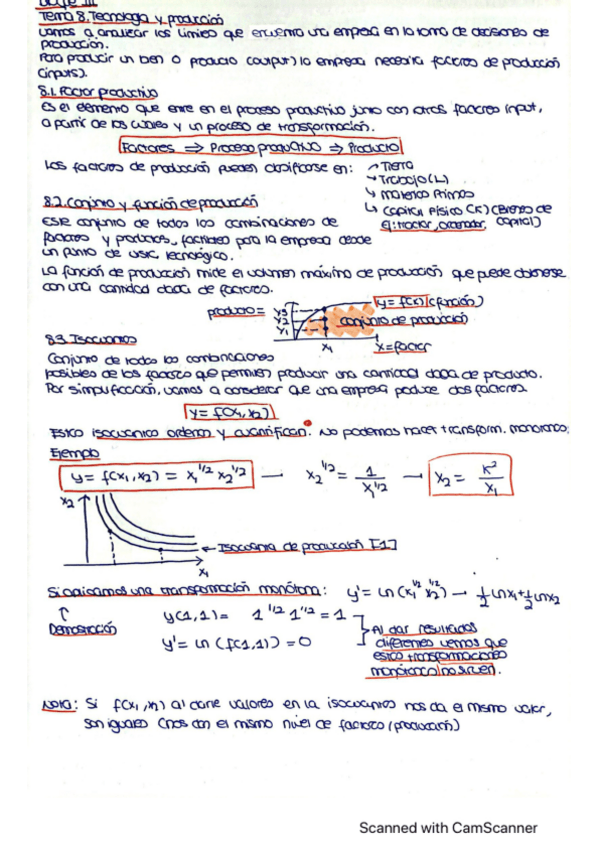 Tema 8. Tecnología y producción
Vamos a analizar los límites que encuentra una empresa en la toma de decisiones de
producción.
Para producir un bien o producto (output) la empresa necesita factores de producción
(inputs).
8.1. Factor productivo
Es el elemento que entre en el proceso productivo junto con otros factores input,
a partir de los cuales y un proceso de transformación.
Factores ⇒ Proceso productivo ⇒ Producto
Los factores de producción pueden clasificarse en:
→ Tierra
→ Trabajo (L)
→ Materias Primas
→ Capital Físico (K) (Bienes de
capital)
Ej: tractor, ordenador,
8.2. Conjunto y función de producción
Este conjunto de todos las combinaciones de
factores y productos, factibles para la empresa desde
un punto de vista tecnológico.
La función de producción mide el volumen máximo de producción que puede obtenerse
con una cantidad dada de factores.
producto =
Y3
Y2
Y1
y = f(x) (función)
conjunto de producción
x1
X = factor
8.3. Isocuantas
Conjunto de todas las combinaciones
posibles de los factores que permiten producir una cantidad dada de producto.
Por simplificación, vamos a considerar que una empresa produce dos factores
y = f(x1, x2)
isocuantas ordenan y cuantifican. No podemos hacer transform. monótonas:
Ejemplo
y = f(x1, x2) = x1^1/2 x2^1/2 — x2^1/2 = 1/x1^1/2 → x2 = K²/x1
x2
← Isocuanta de producción [1]
x1
Si aplicamos una transformación monótona: y' = ln(x1^1/2 x2^1/2) → 1/2 lnx1 + 1/2 lnx2
↑
Demostración
y(1,1) = 1^1/2 1^1/2 = 1
y' = ln (f(1,1)) = 0
Al dar resultados
diferentes vemos que
estas transformaciones
monótonas no sirven.
Nota: Si f(x1, x2) al darle valores en la isocuantas nos da el mismo valor,
son iguales (nos dan el mismo nivel de factores/producción)
Scanned with CamScanner